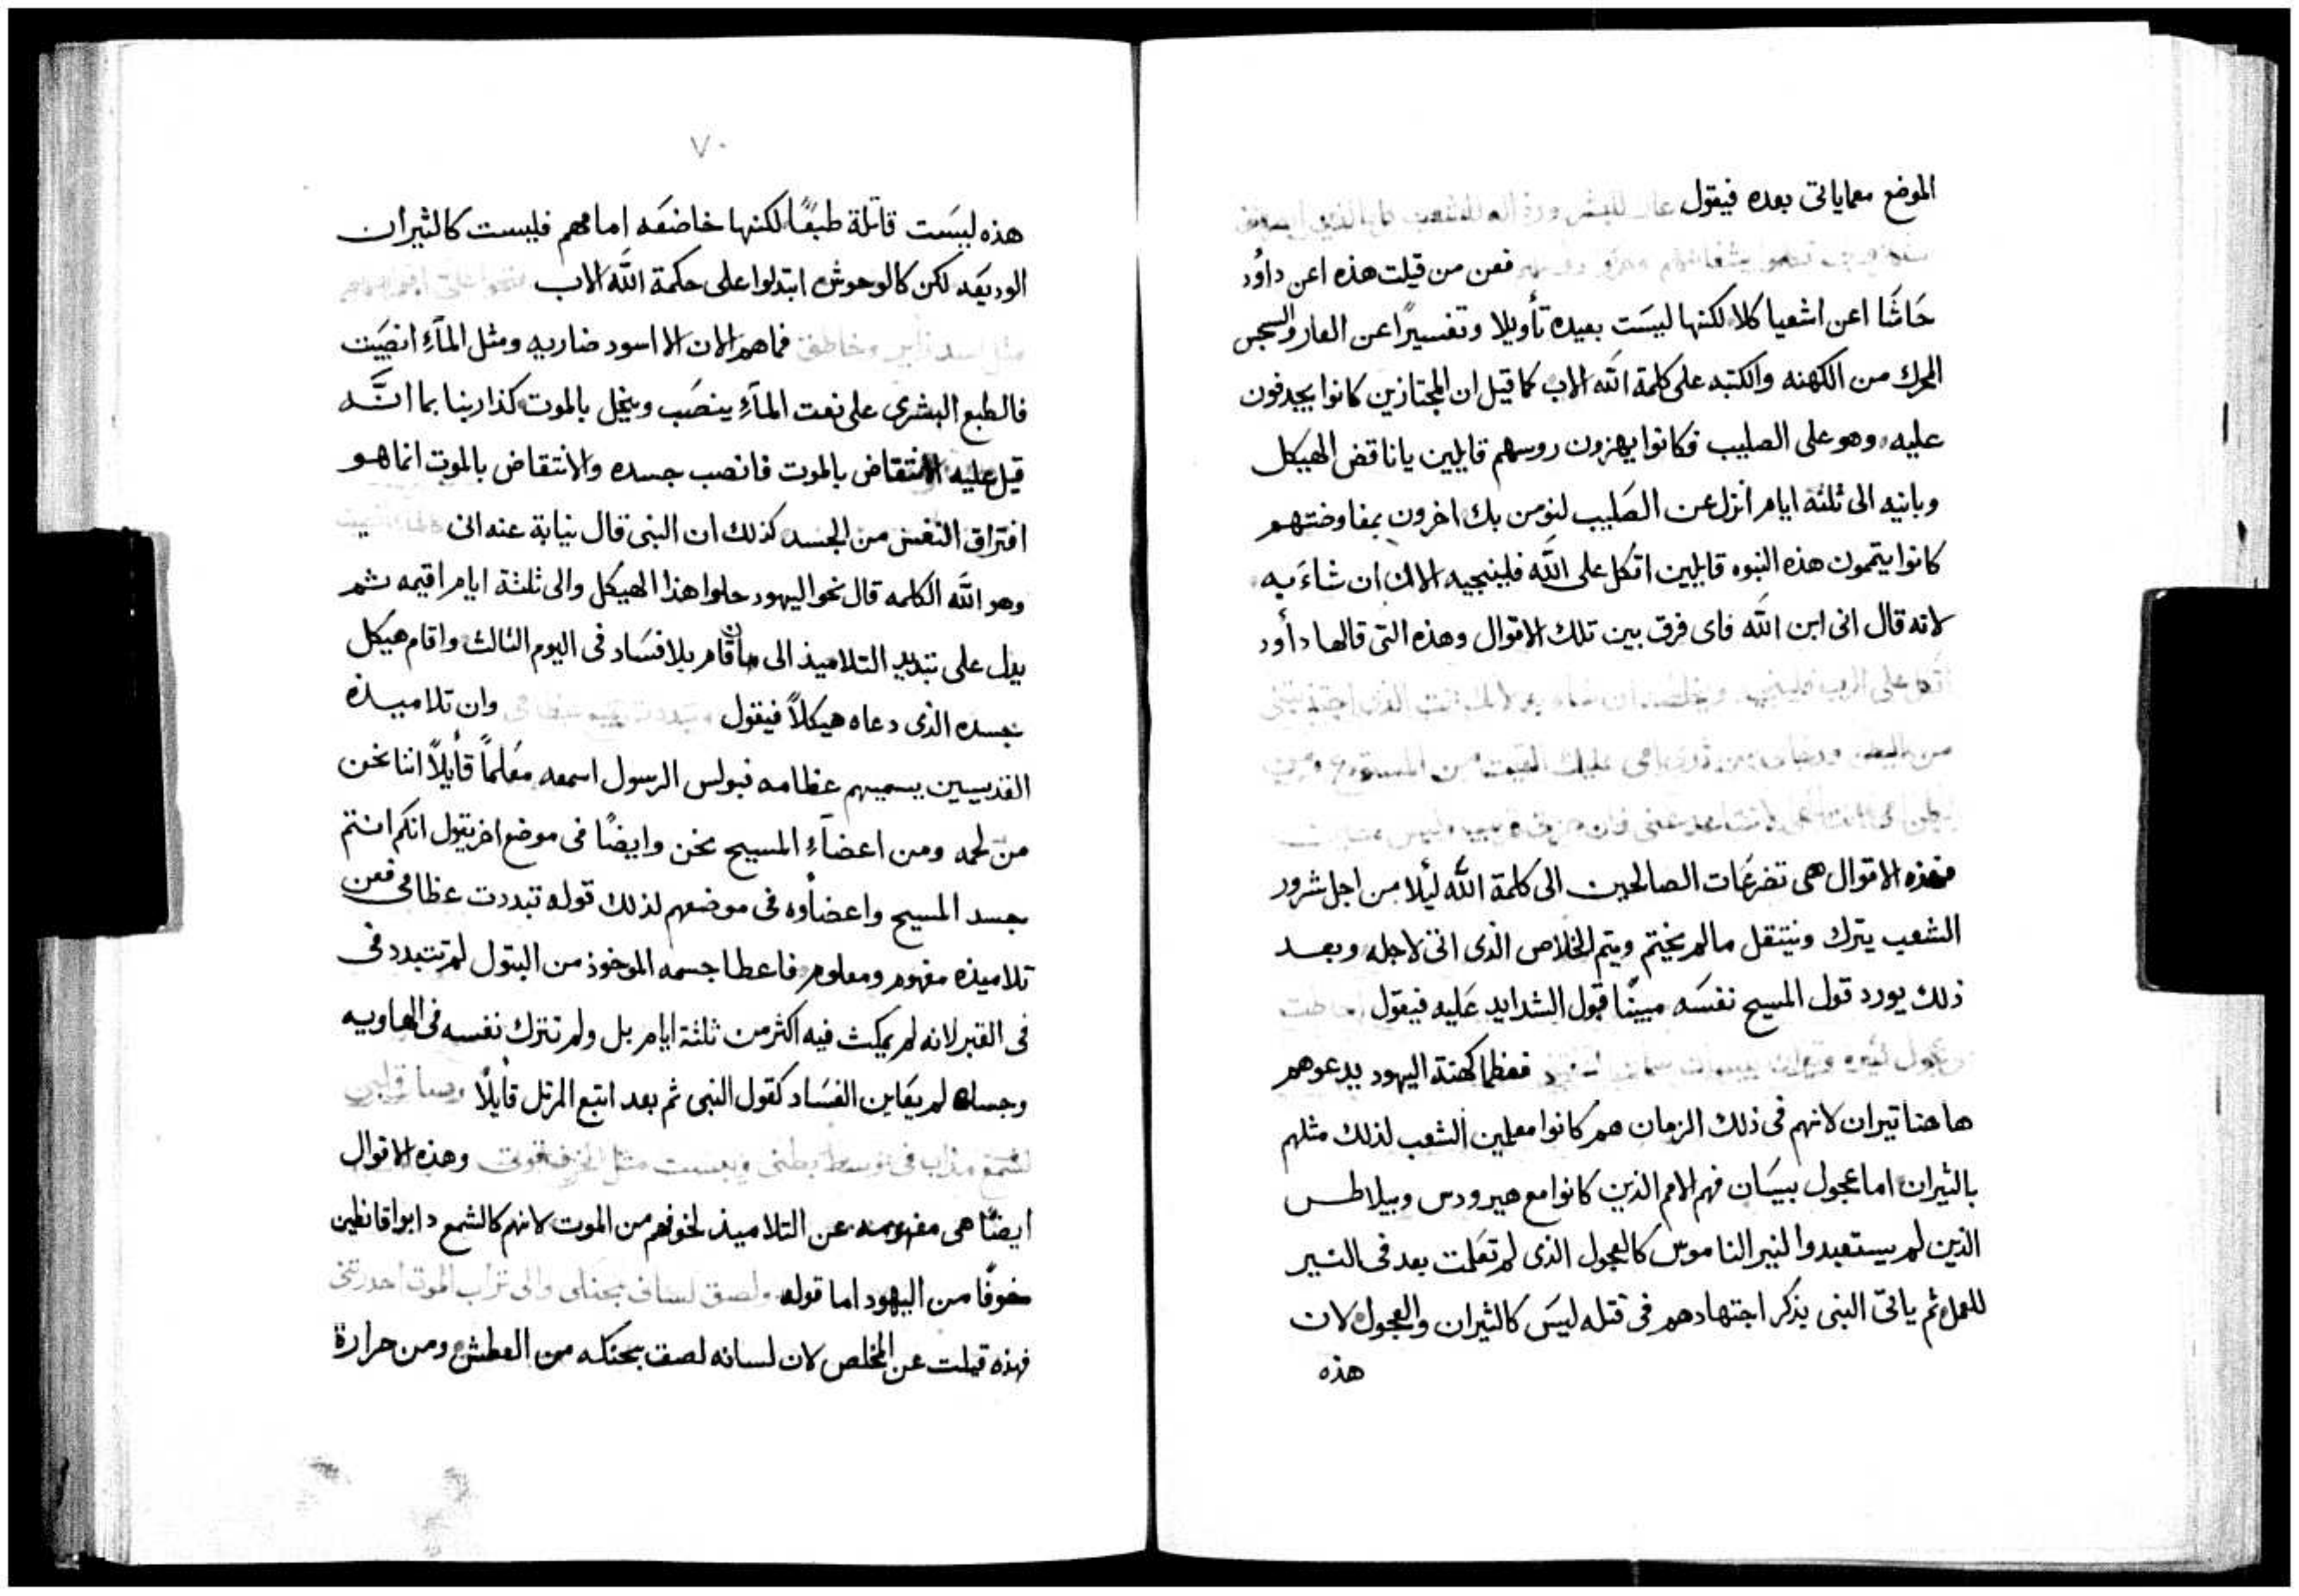 الموضع معماياتى بعده فيقول عار للبشر ورذاله للشعب
فعن من قيلت هذه اعن داوُد
حَاشَا اعن اشعيا كلا لكنها ليسَت بعيده تأويلا وتفسيرًا عن العار والسجس
المحرك من الكهنه والكتبه على كلمة الله الاب كما قيل ان المجتازين كانوا يجدفون
عليه وهو على الصليب فكانوا يهزون روسهم قايلين يا ناقض الهيكل
وبانيه الى ثلثة ايام أنزل عن الصَليب لنومن بك اخرون بمفاوضتهم
كانوا يتممون هذه النبوه قايلين اتكل على الله فلينجيه الان ان شاءَ به
لانه قال انى ابن الله فاى فرق بين تلك الاقوال وهذه التى قالها دأود
اتكل على الرب فلينجيه ويخلصه ان شاء به لانك انت الذى اجتذبتنى
من البطن ورجاى من ثدى امى عليك القيت من المستودع ومن
بطن امى انت الهى لا تتباعد عنى فان حزنى قريب وليس
فهذه الاقوال هى تضرعَات الصالحين الى كلمة الله ليُلا من اجل شرور
الشعب يترك وينتقل مالم يختم ويتم الخلاص الذى اتى لاجله وبعد
ذلك يورد قول المسيح نفسَه مبينًا قبول الشدايد عَليه فيقول احاطت
بى عجول كثيره وثيران بيسان فعظما كهنة اليهود يدعوهم
هاهنا تيران لانهم فى ذلك الزمان هم كانوا معلمين الشعب لذلك مثلهم
بالثيران اما عجول بيسَان فهم الامم الذين كانوا مع هيرودس وبيلاطس
الذين لم يستعبدوا لنير الناموس كالعجول الذى لم تعَلت بعد فى النير
للعمل ثم ياتى النبى يذكر اجتهادهم فى قتله ليسَ كالثيران والعجول لان
هذه
٧٠
هذه ليسَت قاتلة طبعًا لكنها خاضعَه امامهم فليست كالثيران
الوديعَه لكن كالوحوش ابتدلوا على حكمة الله الاب فتحوا على افواههم
مثل اسد زاير وخاطف فماهم الان الا اسود ضاريه ومثل المآءِ انصَبيت
فالطبع البشرى على نعت المآءِ ينصَب وينحل بالموت كذا ربنا بما انَّه
قيل عليه الانتقاض بالموت فانصب جسده والانتقاض بالموت انما هو
افتراق النفس من الجسد كذلك ان النبى قال نيابة عنه انى
وهو الله الكلمه قال نحو اليهود حلوا هذا الهيكل والى ثلثة ايام اقيمه ثم
يدل على تبديد التلاميذ الى ما قام بلا فسَاد فى اليوم الثالث واقام هيكل
جسده الذى دعاه هيكلاً فيقول وتبددت جميع عظامى وان تلاميذه
القديسين يسميهم عظامه فبولس الرسول اسمعه معَلمًا قأيلاً اننا نحن
من لحمه ومن اعضآءِ المسيح نحن وايضًا فى موضع اخر يقول انكم انتم
جسد المسيح واعضأوه فى موضعهم لذلك قوله تبددت عظامى فعن
تلاميذه مفهوم ومعلوم فاعطا جسمه الموخوذ من البتول لم تتبدد فى
فى القبر لانه لم يمكث فيه اكثر من ثلثة ايام بل ولم تترك نفسه فى الهاويه
وجسده لم يعَاين الفسَاد كقول النبى ثم بعد اتبع المرتل قأيلاً وصار قلبى
كشمع مذاب فى وسط بطنى ويبست مثل الخزف قوتى وهذه الاقوال
ايضًا هى مفهومه عن التلاميذ لخوفهم من الموت لانهم كالشمع دابوا قانطين
خوفًا من اليهود اما قوله ولصق لسانى بحنكى والى تراب الموت احدرتنى
فهذه قيلت عن المخلص لان لسانه لصق بحنكه من العطش ومن حرارة